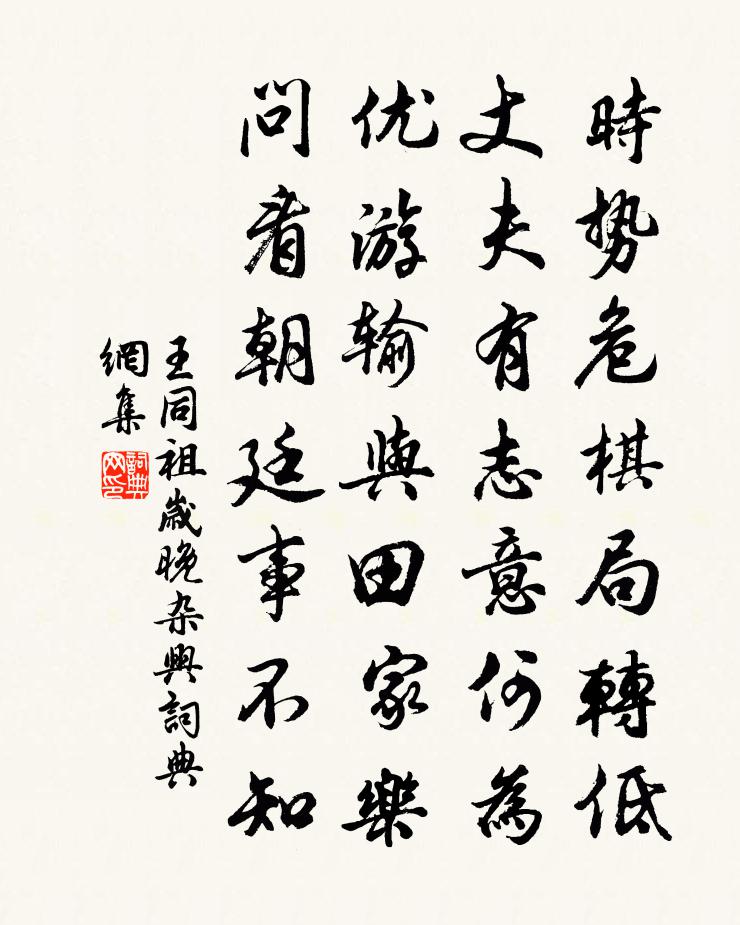 時勢危棋局轉低
丈夫有志意何為
优游输與田家樂
問着朝廷事不知
王同祖歲晚杂興詞典
網集
詞典
网印